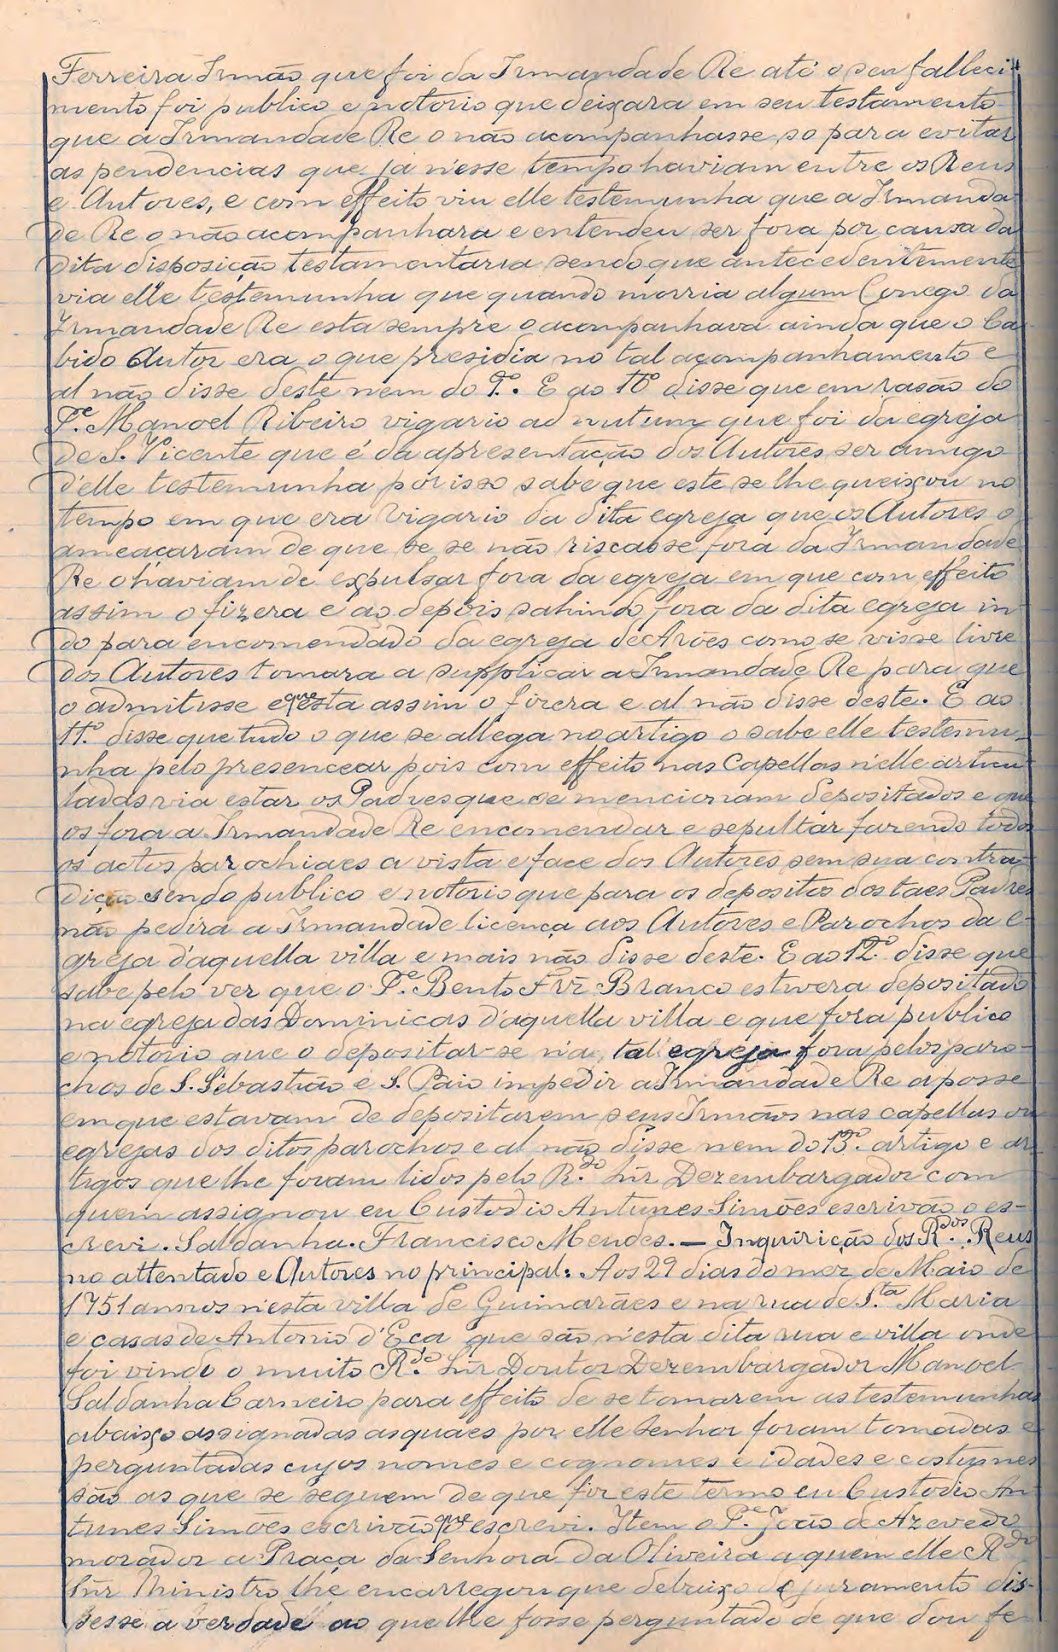 Ferreira Irmão que foi da Irmandade Re até o seu falleci-
mento foi publico e notorio que deixara em seu testamento
que a Irmandade Re o não acompanhasse, so para evitar
as pendencias que já n'esse tempo haviam entre os Reus
e Autores, e com effeito viu elle testemunha que a Irmanda-
de Re o não acompanhara e entendeu ser fora por causa da
dita disposição testamentaria sendo que antecedentemente
via elle testemunha que quando morria algum Conego da
Irmandade Re esta sempre o acompanhava ainda que o Ca-
bido Autor era o que presidia no tal acompanhamento e
al não disse deste nem do 9.º. E ao 10º disse que em rasão do
P.e Manoel Ribeiro vigario ad nutum que foi da egreja
de S. Vicente que é da apresentação dos Autores ser amigo
d'elle testemunha por isso sabe que este se lhe queixou no
tempo em que era vigario da dita egreja que os Autores o
ameaçaram de que se se não riscasse fora da Irmandade
Re o haviam de expulsar fora da egreja em que com effeito
assim o fizera e ao depois sahindo fora da dita egreja in-
do para encomendado da egreja de Arões como se visse livre
dos Autores tornara a supplicar a Irmandade Re para que
o admitisse e que esta assim o fizera e al não disse deste. E ao
11.º disse que tudo o que se allega no artigo o sabe elle testemu-
nha pelo presencear pois com effeito nas Capellas n'elle articu-
ladas via estar os Padres que se mencionam depositados e que
os fora a Irmandade Re encomendar e sepultar fazendo todos
os actos parochiaes a vista e face dos Autores sem sua contra-
dição sendo publico e notorio que para os depositos dos taes Padres
não pedira a Irmandade licença aos Autores e Parochos da e-
greja d'aquella villa e mais não disse deste. E ao 12.º disse que
sabe pelo ver que o P.e Bento Frz Branco estivera depositado
na egreja das Dominicas d'aquella villa e que fora publico
e notorio que o depositar-se n'a tal egreja fora pelos paro-
chos de S. Sebastião e S. Paio impedir a Irmandade Re a posse
em que estavam de depositarem seus Irmãos nas capellas ou
egrejas dos ditos parochos e al não disse nem do 13.º artigo e ar-
tigos que lhe foram lidos pelo R.do Snr Dezembargador com
quem assignou eu Custodio Antunes Simões escrivão o es-
crevi. Saldanha. Francisco Mendes. — Inquirição dos R.dos Reus
no attentado e Autores no principal: Aos 29 dias do mez de Maio de
1751 annos n'esta villa de Guimarães e na rua de S.ta Maria
e casas de Antonio d'Eça que são n'esta dita rua e villa onde
foi vindo o muito R.do Snr Doutor Dezembargador Manoel
Saldanha Carneiro para effeito de se tomarem as testemunhas
abaixo assignadas as quaes por elle Senhor foram tomadas e
perguntadas cujos nomes e cognomes e idades e costumes
são as que se seguem de que fiz este termo eu Custodio An-
tunes Simões escrivão que o escrevi. Item o P.e João de Azevedo
morador a Praça da Senhora da Oliveira a quem elle R.do
Snr Ministro lhe encarregou que debaixo de juramento dis-
sesse a verdade ao que lhe fosse perguntado de que dou fe